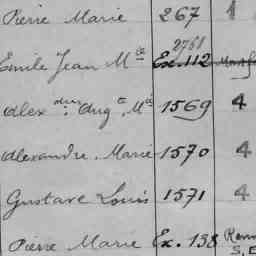 Pierre Marie 267 1
2768
Emile Jean Mie Ex. 112
Alexdre Augte Mie 1569 4
Alexandre. Marie 1570 4
Gustave Louis 1571 4
Pierre Marie Ex. 198
S.E